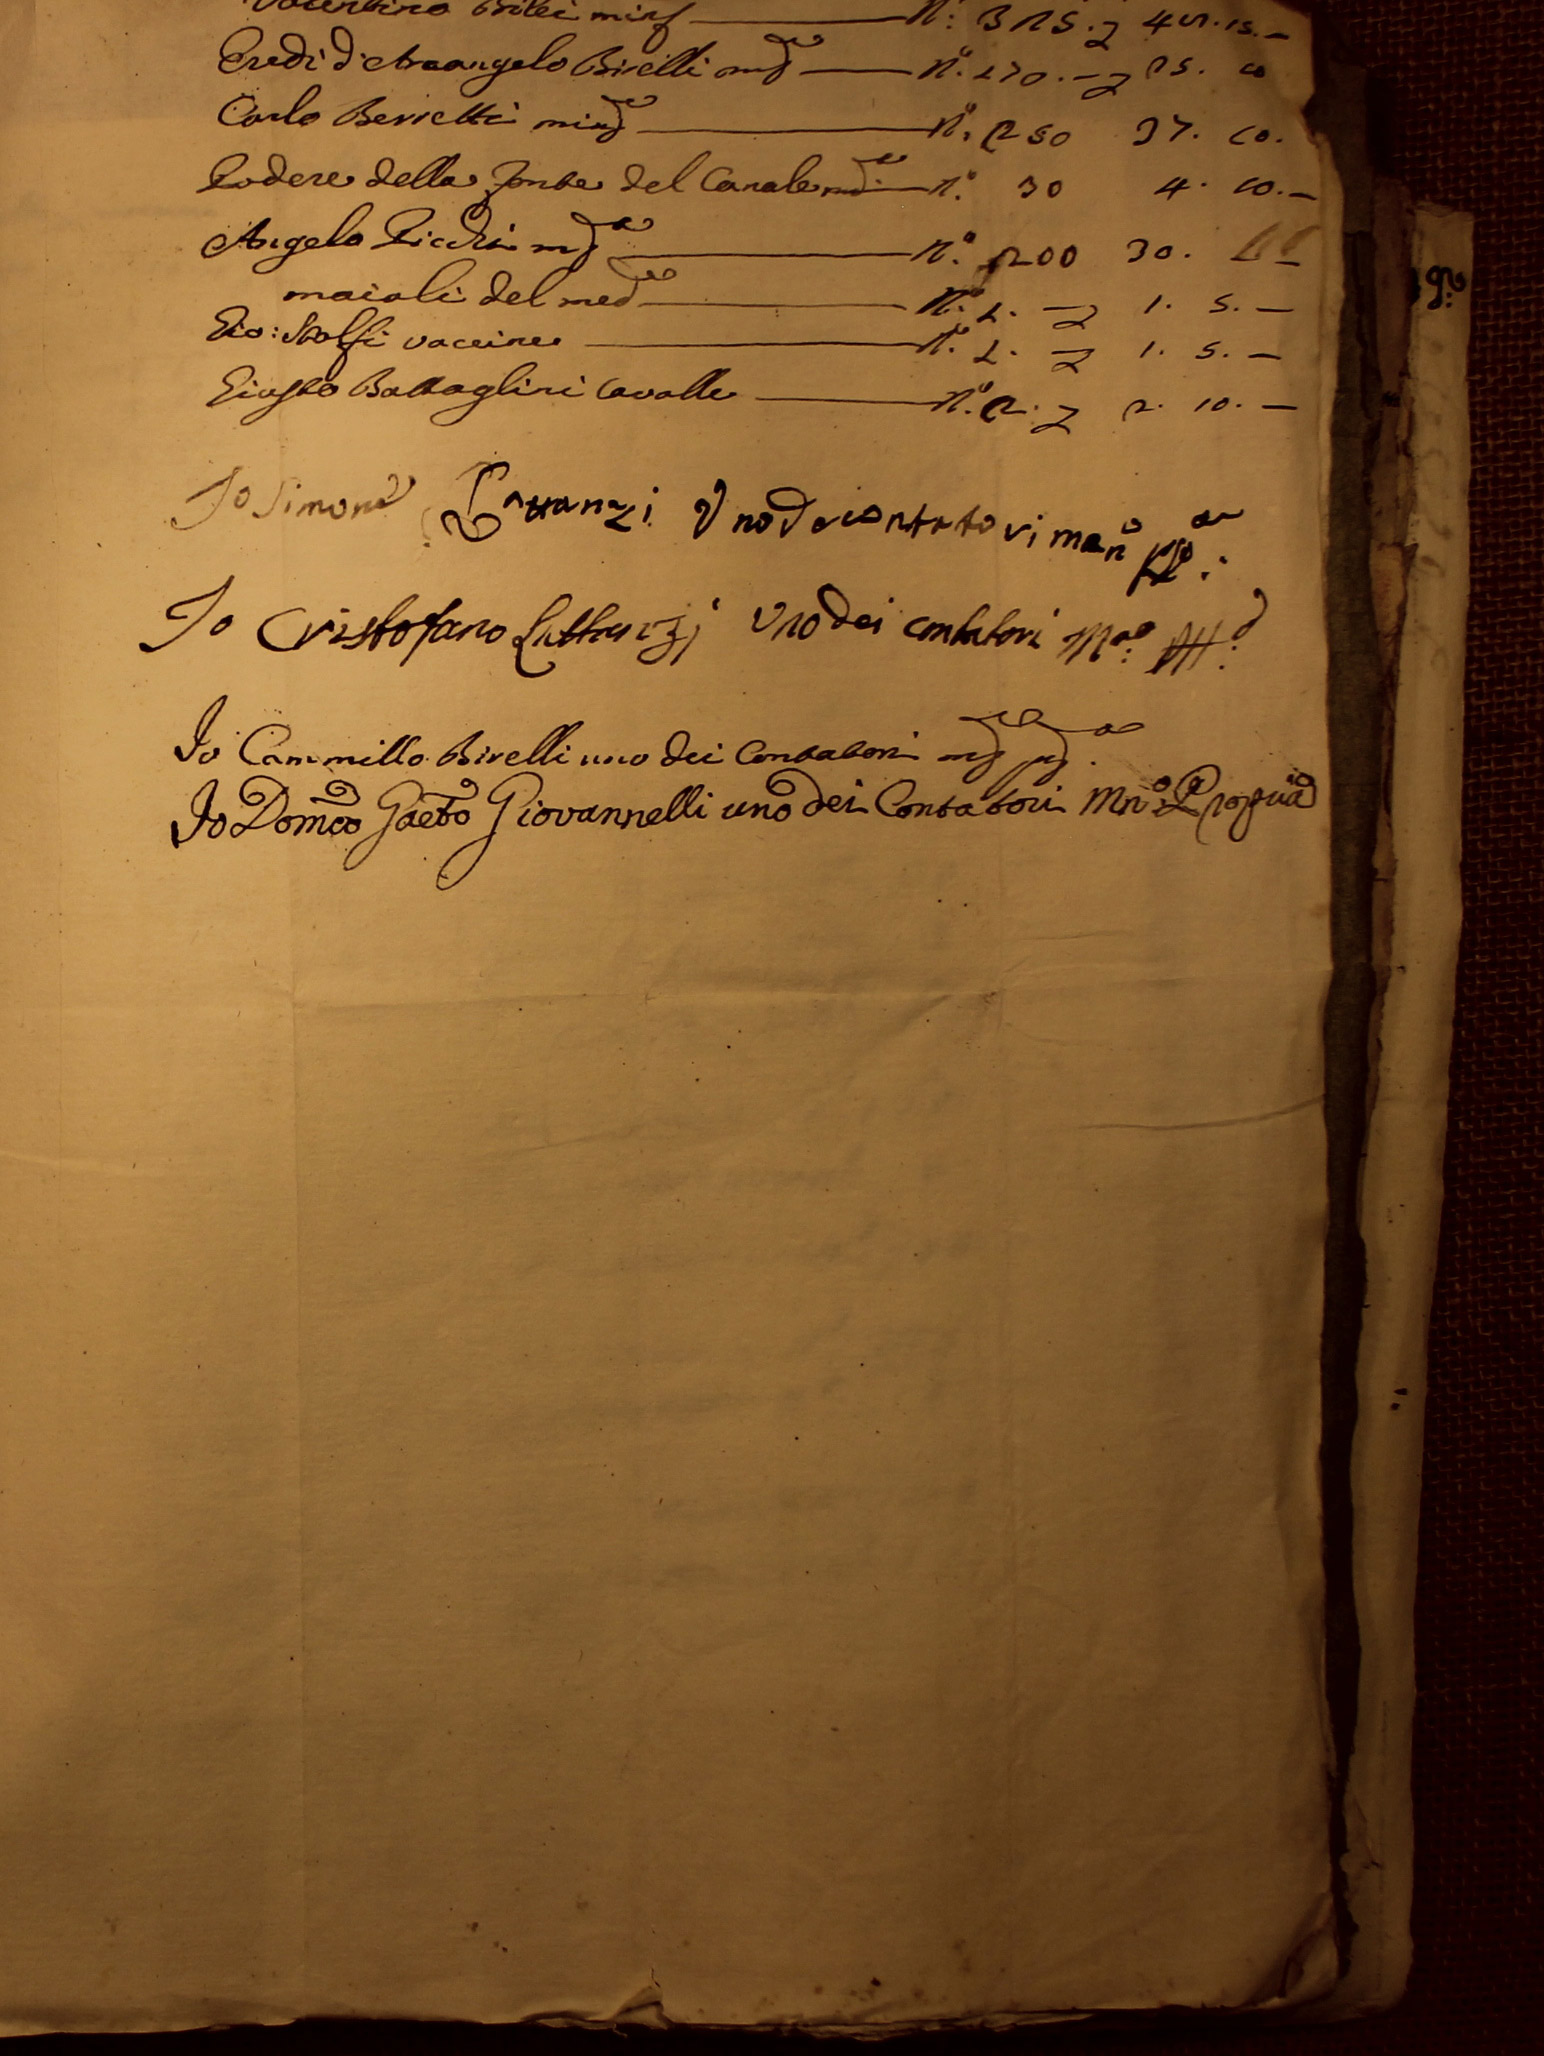 Valentino Bibbi min^e N.° 325. Z 48. 15. —
Eredi d'Arcangelo Birelli md^e N.° 170. — Z 25. 10
Carlo Berretti mind^e N.° 250 37. 10.
Podere della Fonte del Canale md^e N.° 30 4. 10. —
Angelo Ricchi md^e N.° 200 30. —
maiali del med^o N.° 1. — Z 1. 5. —
Gio: Stolfi vaccine N.° 1. — Z 1. 5. —
Giusto Battaglini Cavalle N.° 2. Z 2. 10. —
Io Simone Lattanzi Uno dei contatori man° pp^a:
Io Cristofano Lattanzi Uno dei contatori M^no:
Io Cammillo Birelli uno dei Contatori m° p^a.
Io Dom^co Gaet^o Giovannelli uno dei Contatori Mn° Propria